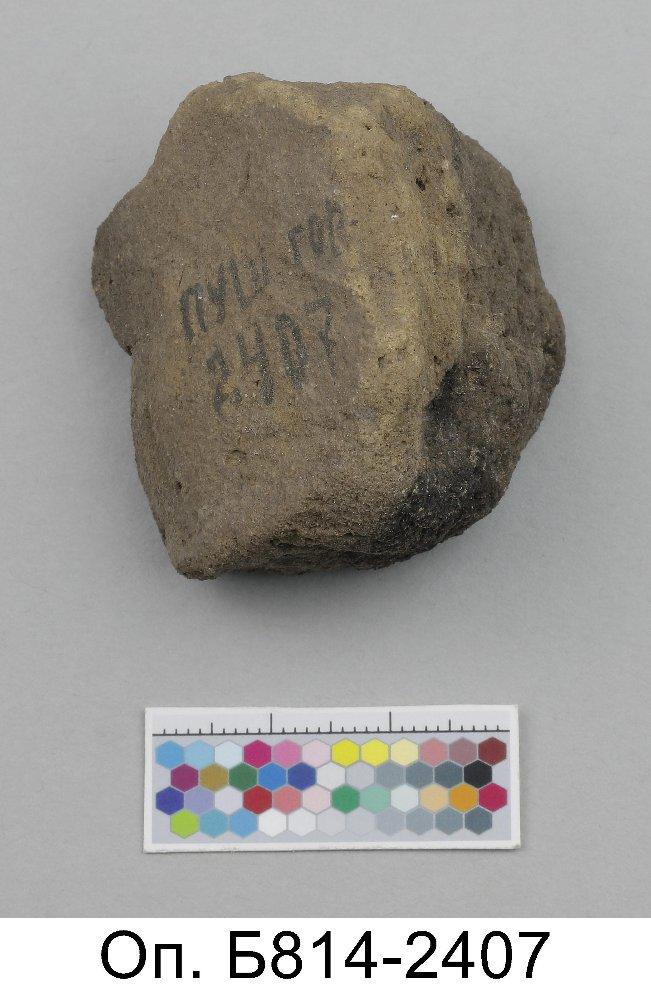 ПУШ ГОР.
2407
Оп. Б814-2407